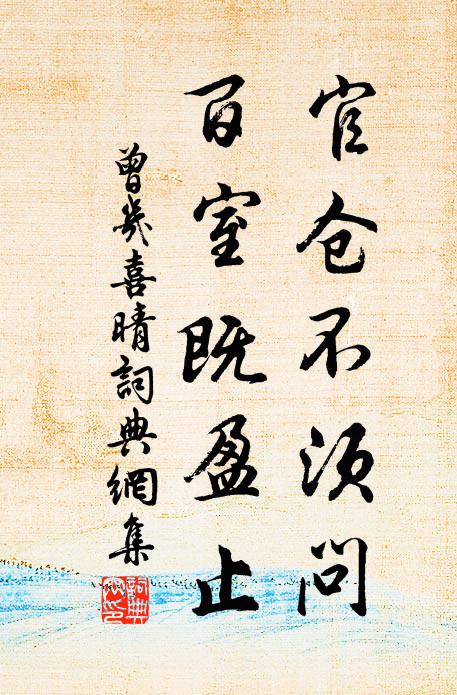 官仓不须问
百室既盈止
曾幾喜晴詞典網集